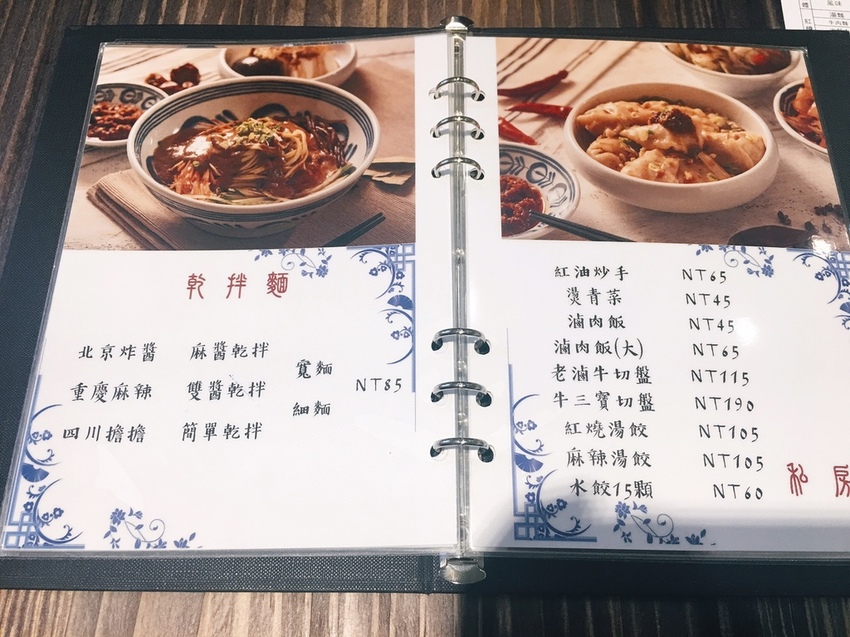 乾拌麵
北京炸醬 麻醬乾拌
重慶麻辣 雙醬乾拌
四川擔擔 簡單乾拌
寬麵
細麵
NT85
紅油炒手 NT65
燙青菜 NT45
滷肉飯 NT45
滷肉飯(大) NT65
老滷牛切盤 NT115
牛三寶切盤 NT190
紅燒湯餃 NT105
麻辣湯餃 NT105
水餃15顆 NT60
私房